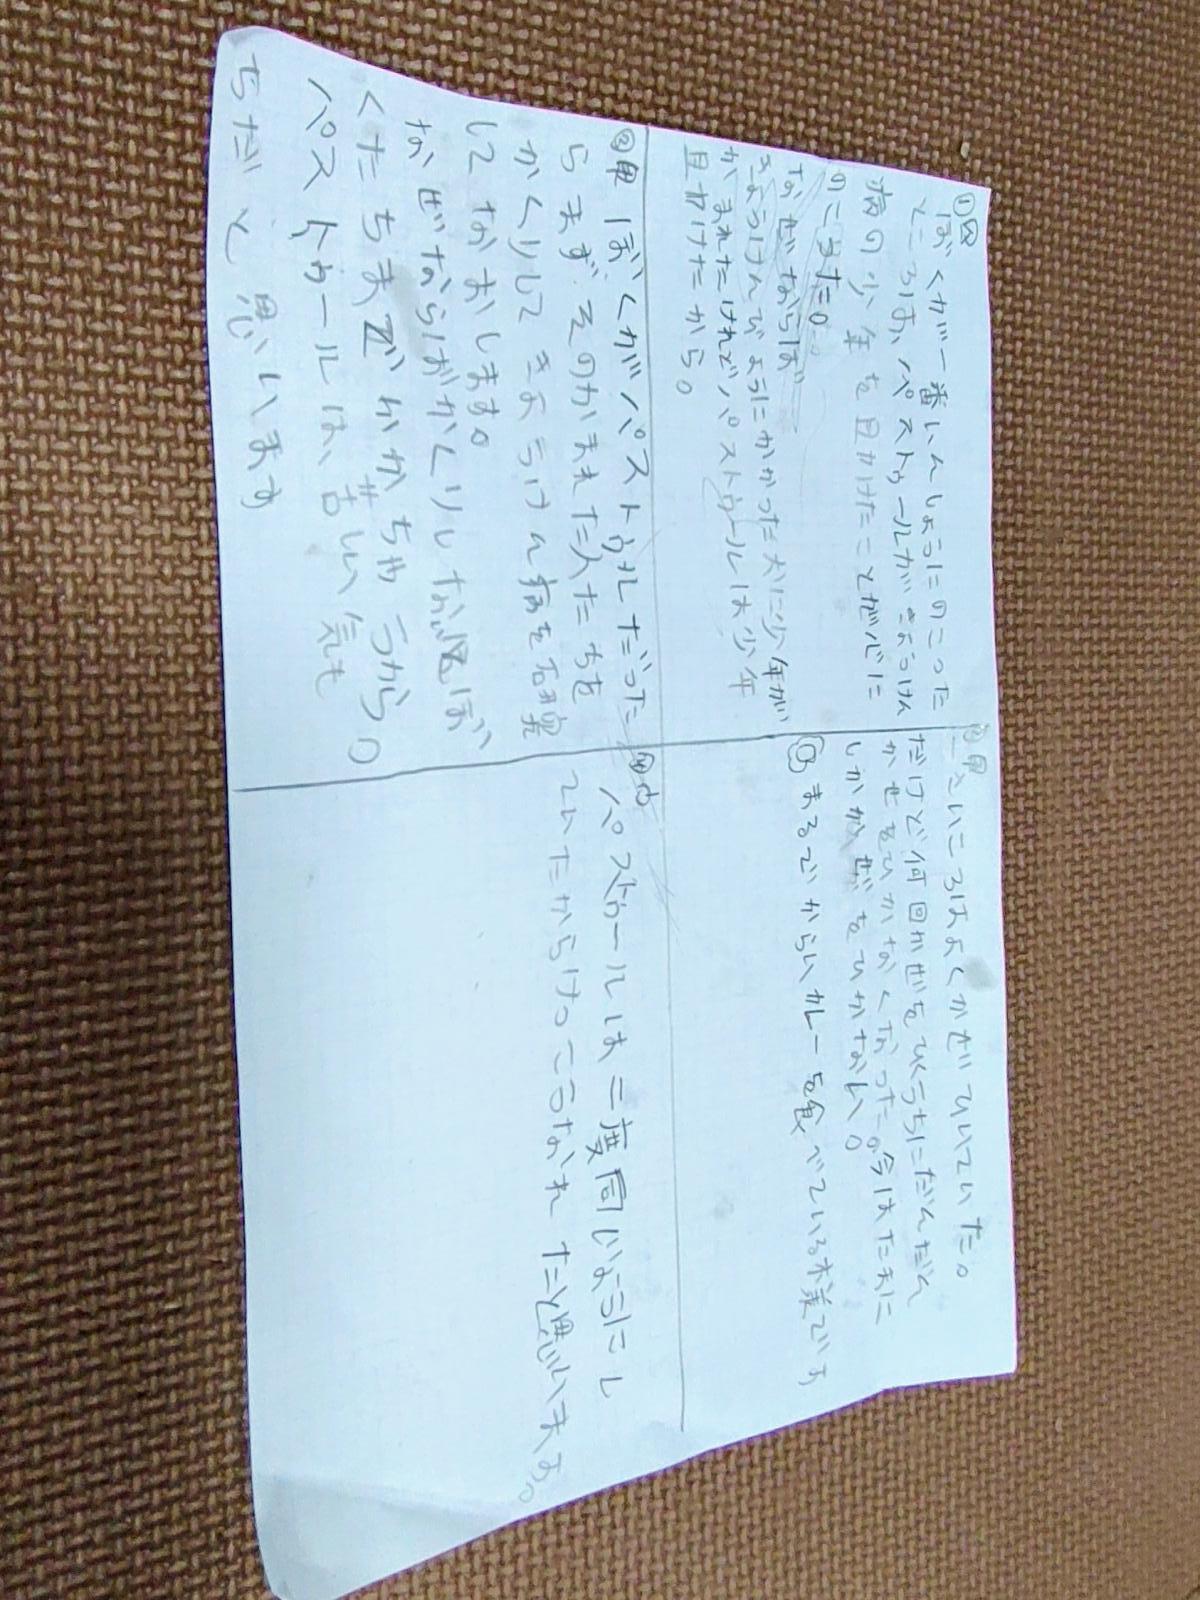 ①図
ぼくが一番いんしようにのこった
ところは、パストゥールがきようけん
病の少年を助けたことが心に
のこうた。
なぜならば
きようけんびようにかかった犬に少年が
かまれたけれどパストゥールは少年
助けたから。
②思
一さいころはよくかぜひいていた。
だけど何回かぜをひくうちにだんだん
かぜをひかなくなった。今はたまに
しかかぜをひかない。
まるでからいカレーを食べている様です
③思 ぼくがパストゥルだった
らまず、そのかまれた人たちを
かくりして きようけん病を
してなおします。
なぜならばかくりしな ぼ
くたちまでかかちゃうから。
パストゥールは、苦しい気も
ちだと思います
パストゥールは二度同じようにし
ていたからけっこうなれたと思います。